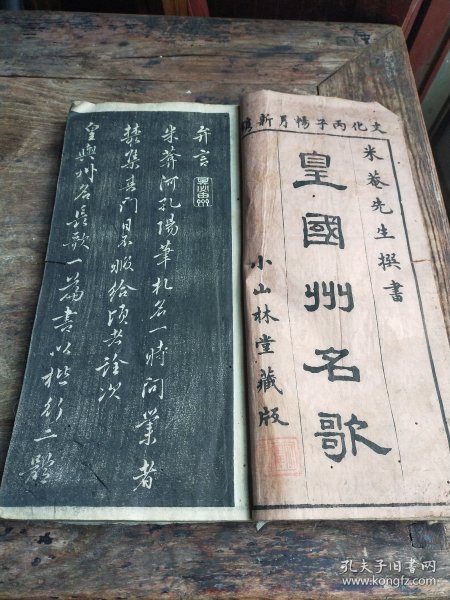 文化丙子暢月新鐫
米菴先生撰書
皇國州名歌
小山林堂藏版
弁言
米莽河孔陽筆札名一時問業者
輳集其門日不暇給頃者詮次
皇輿州名長歌一篇書以楷行二體
孔夫子旧书网
www.kongfz.com